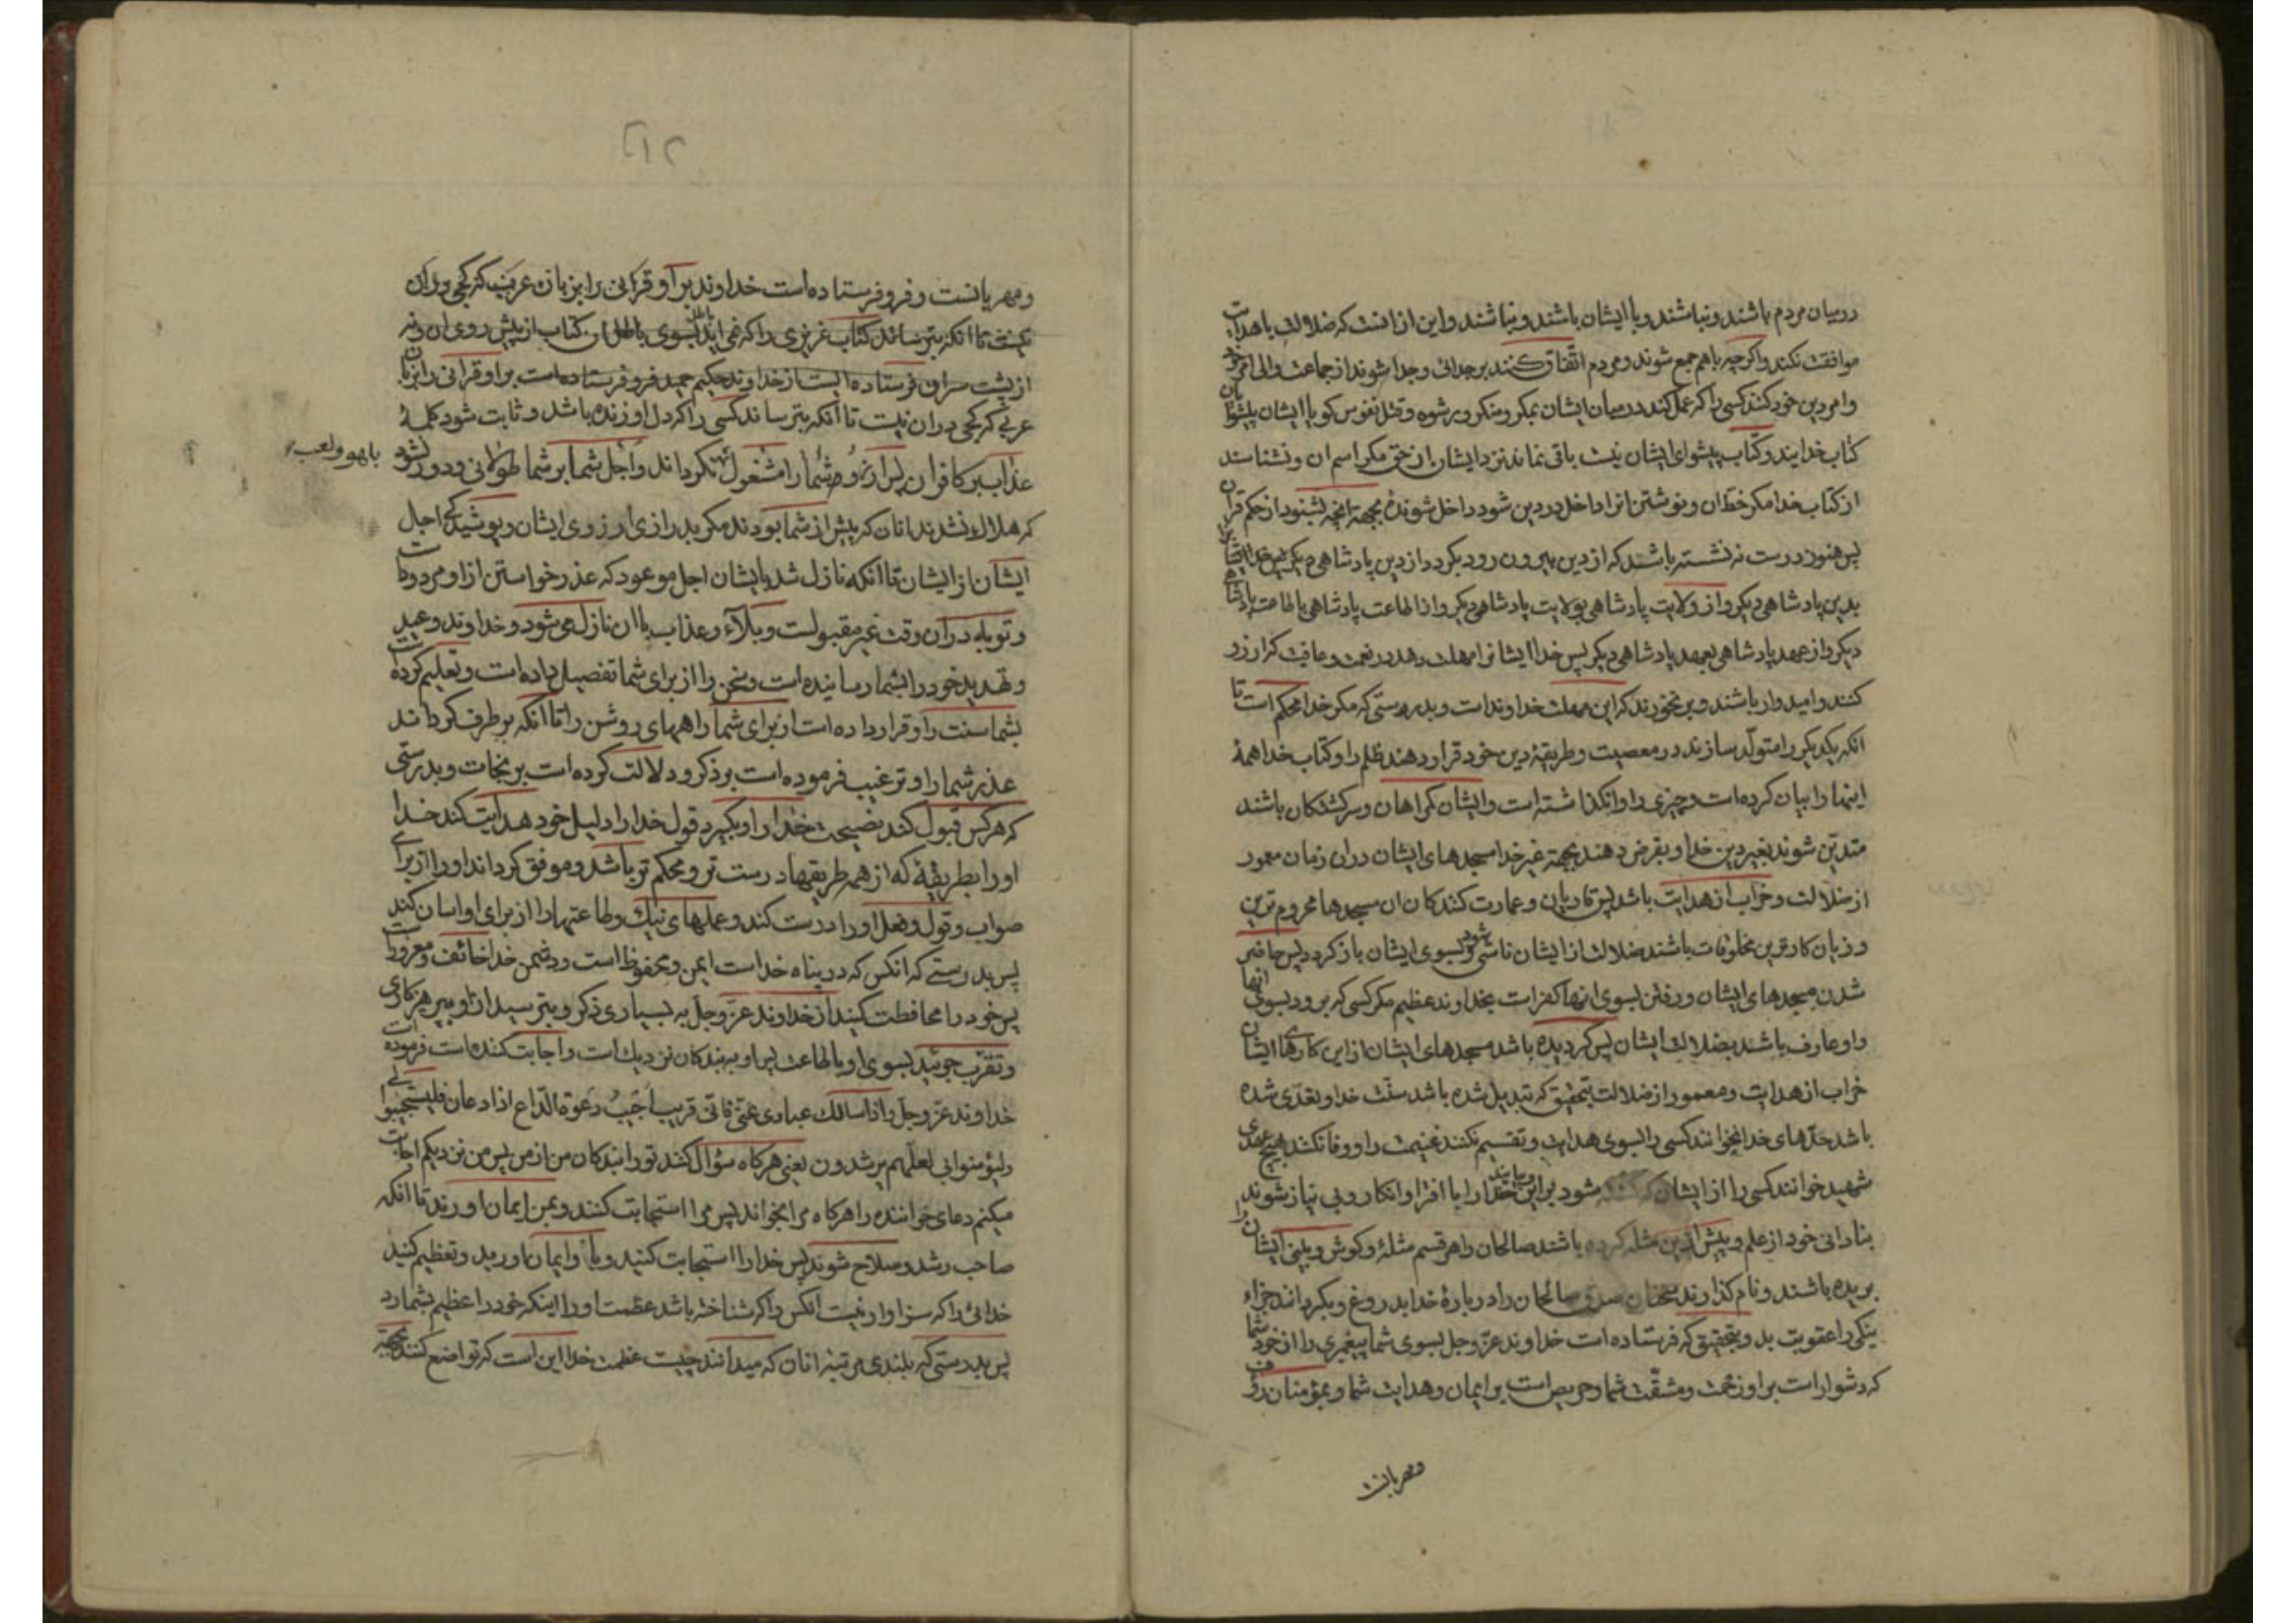 درمیان مردم باشند و نباشند و با ایشان باشند و نباشند و این از انست که ضلالت با هدایت
موافقت نکند و اکرچه باهم جمع شوند و مردم اتفاق کنند بر جدائی و جدا شوند از جماعت والی امر خود
وامر دین خود کنند کسی را که عمل کند درمیان ایشان بمکر و منکر و رشوه و قتل نفوس کویا ایشان پیشوایان
کتاب خدایند و کتاب پیشوای ایشان نیست باقی نماند نزد ایشان از حق مکر اسم ان و نشناسند
از کتاب خدا مکر خط ان و نوشتن انرا داخل در دین شود داخل شونده بجهة انچه بشنود از حکم قران
پس هنوز درست نه نشسته باشد که از دین بیرون رود بکردد از دین پادشاهی
بدین پادشاهی دیکر و از ولایت پادشاهی بولایت پادشاهی دیکر و از اطاعت پادشاهی باطاعت پادشاه
دیکر و از عهد پادشاهی بعهد پادشاهی دیکر پس خدا ایشانرا مهلت دهد در نعمت و عافیت که ارزو
کنند و امیدوار باشند و برنخورند که این مهلت خداوند است و بدرستی که مکر خدا محکم است تا
انکه یکدیکر را متولد سازند در معصیت و طریقهٔ دین خود قرار دهند ظلم را و کتاب خدا همهٔ
اینها را بیان کرده است و چیزی را وانکذاشته است و ایشان کمراهان و سرکشتکان باشند
متدین شوند بغیر دین خدا و بقرض دهند بجهة غیر خدا مسجدهای ایشان دران زمان معمور
از ضلالت و خراب از هدایت باشد پس قاریان و عمارت کنندکان ان مسجدها محروم ترین
و زیان کارترین مخلوقات باشند ضلالت از ایشان ناشی شود و بسوی ایشان بازکردد پس حاضر
شدن مسجدهای ایشان و رفتن بسوی انها کفر است بخداوند عظیم مکر کسی که برود بسوی انها
و او عارف باشد بضلالت ایشان پس کردیده باشد مسجدهای ایشان از این کارهای ایشان
خراب از هدایت و معمور از ضلالت بتحقیق که تبدیل شده باشد سنت خدا و تعدی شده
باشد حدهای خدا نخوانند کسی را بسوی هدایت و تقسیم نکنند غنیمت را و وفا نکنند بهیچ عهدی
شهید خوانند کسی را از ایشان که کشته شود براین خدا را با افترا و انکار و بی نیاز شوند
بنادانی خود از علم و پیش از این مثله کرده باشند صالحان را هر قسم مثلهٔ و کوش و بینی ایشان را
بریده باشند و نام کذارند سخنان صدق صالحان را درباره خدا بدروغ و بکردانند جزاء
نیکی را عقوبت بد و بتحقیق که فرستاده است خداوند عز و جل بسوی شما پیغمبری را از خود شما
که دشوار است بر او زحمت و مشقت شما و حریص است بر ایمان و هدایت شما و بمؤمنان رؤف
ومهربانست
۲۱۵
ومهربانست و فرو فرستاده است خداوند بر او قرانی را بزبان عربیت که کجی دران
نیست تا انکه بترساند کتاب عزیزی را که نمی اید بسوی باطل ان کتاب از پیش روی ان و نه
از پشت سر ان فرستاده ایست از خداوند حکیم حمید فرو فرستاده است بر او قرانی را بزبان
عربی که کجی دران نیست تا انکه بترساند کسی را که دل او زنده باشد و ثابت شود کلمهٔ
عذاب بر کافران پس ارزو شما را مشغول نکرداند و اجل شما بر شما طولانی و دور نشود
بلهو و لعب
که هلاک نشدند انان که پیش از شما بودند مکر بدرازی ارزوی ایشان و پوشیدکی اجل
ایشان از ایشان تا انکه نازل شد بایشان اجل موعود که عذرخواستن از او مردود است
و توبه دران وقت غیر مقبولست و بلاء و عذاب با ان نازل می شود و خداوند وعید
و تهدید خود را بشما رسانیده است و سخن را از برای شما تفصیل داده است و تعلیم کرده است
بشما سنت را و قرار داده است از برای شما راههای روشن را تا انکه برطرف کرداند
عذر شما را و ترغیب فرموده است بر ذکر و دلالت کرده است بر نجات و بدرستی
که هرکس قبول کند نصیحت خدا را و بکیرد قول خدا را دلیل خود هدایت کند خدا
او را بطریقهٔ که از همه طریقها درست تر و محکم تر باشد و موفق کرداند او را از برای
صواب و قول و فعل او را درست کند و عملهای نیک و طاعتها را از برای او اسان کند
پس بدرستی که انکس که در پناه خداست ایمن و محفوظ است و دشمن خدا خائف و مغرور است
پس خود را محافظت کنید از خداوند عز و جل به بسیاری ذکر و بترسید از او بپرهیزکاری
و تقرب جوئید بسوی او باطاعت پس او به بندکان نزدیک است و اجابت کننده است فرموده است
خداوند عز و جل و اذا سالک عبادی عنی فانی قریب اجیب دعوة الداع اذا دعان فلیستجیبوا لی
ولیؤمنوا بی لعلهم یرشدون یعنی هرکاه سؤال کنند تو را بندکان من از من پس من نزدیکم اجابت
میکنم دعای خواننده را هرکاه مرا بخواند پس مرا استجابت کنند و بمن ایمان اورند تا انکه
صاحب رشد و صلاح شوند پس خدا را استجابت کنید و باو ایمان اورید و تعظیم کنید
خدائی را که سزاوار نیست انکس را که شناخته باشد عظمت او را اینکه خود را عظیم بشمارد
پس بدرستی که بلندی مرتبه انان که میدانند چیست عظمت خدا این است که تواضع کنند بجهة